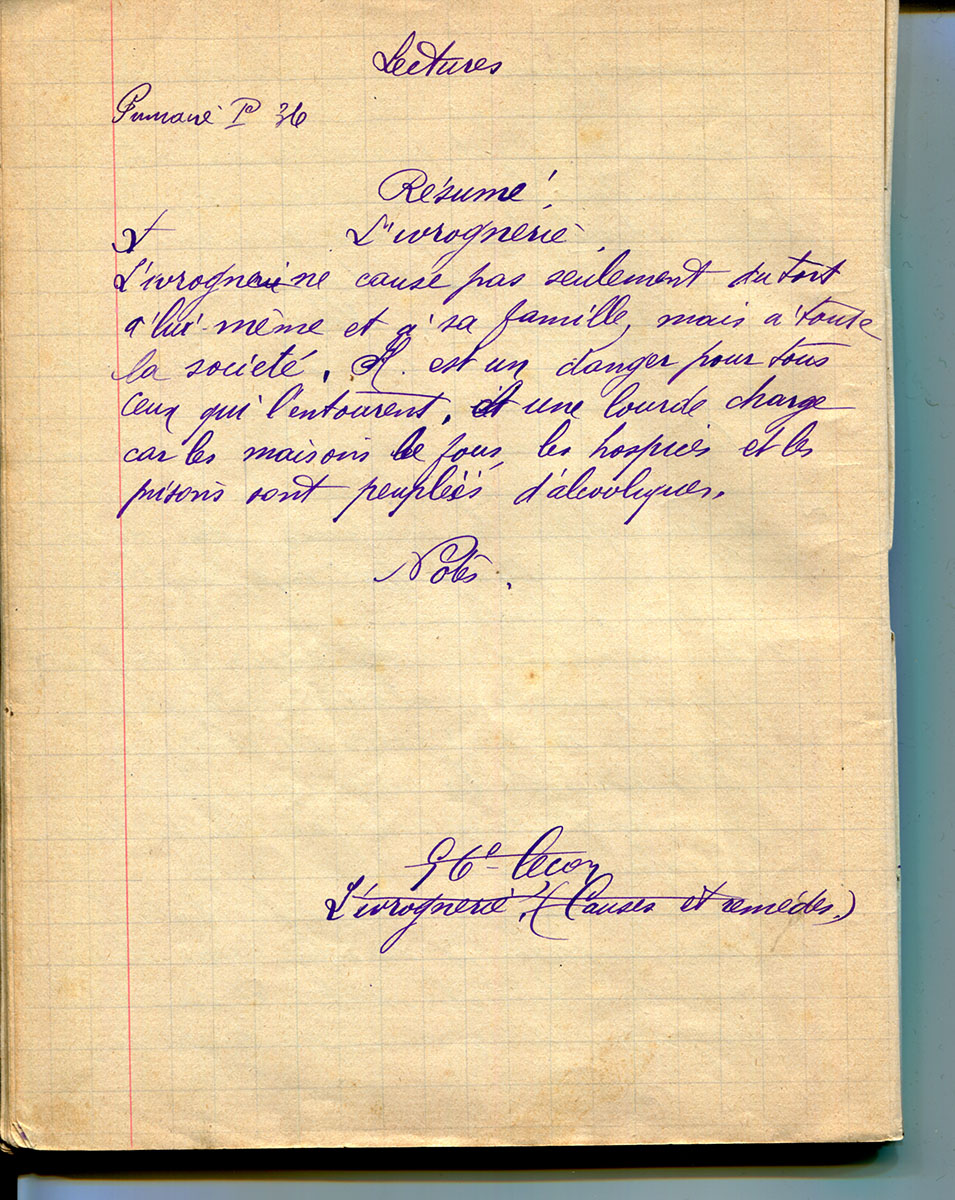 Lectures
P 36
Résumé.
L'ivrognerie.
L'ivrogne ne cause pas seulement du tort
à lui-même et à sa famille, mais à toute
la société. Il est un danger pour tous
ceux qui l'entourent, et une lourde charge
car les maisons de fous, les hospices et les
prisons sont peuplées d'alcooliques.
Notes.
36e leçon
L'ivrognerie. (Causes et remèdes.)